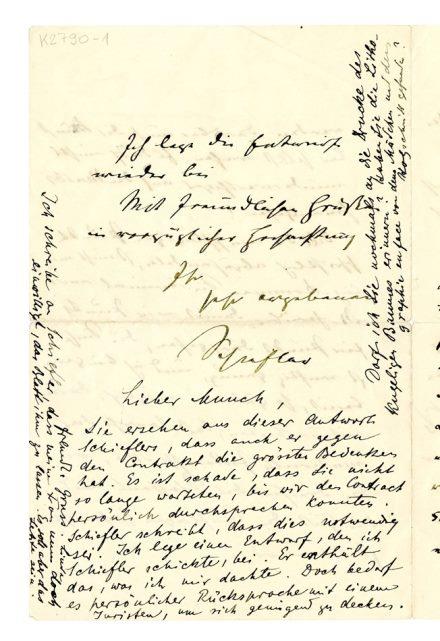 K2790-1
Ich lege die Entwürfe
wieder bei
Mit freundlichen Grüßen
in vorzüglicher Hochachtung
Ihr
sehr ergebener
Schiefler
Lieber Munch,
Sie ersehen aus dieser Antwort
Schieflers, dass auch er gegen
den Contrakt die grösste Bedenken
hat. Es ist schade, dass Sie nicht
so lange warteten, bis wir den Contract
persönlich durchsprechen konnten.
Schiefler schreibt, dass dies notwendig
sei. Ich lege einen Entwurf, den ich
Schiefler schickte, bei. Er enthält
das, was ich mir dachte. Doch bedarf
es persönlicher Rücksprache mit einem
Juristen, um sich genügend zu decken.
Freundl. Gruss. Linde
Ich schreibe an Schiefler, dass
einwilligt, das Blatt ihm zu lassen.
Darf ich Sie nochmals an die Drucke des
kugeligen Baumes erinnern? Haben Sie die Litho-
graphie en face von dem Mädchen mit dem